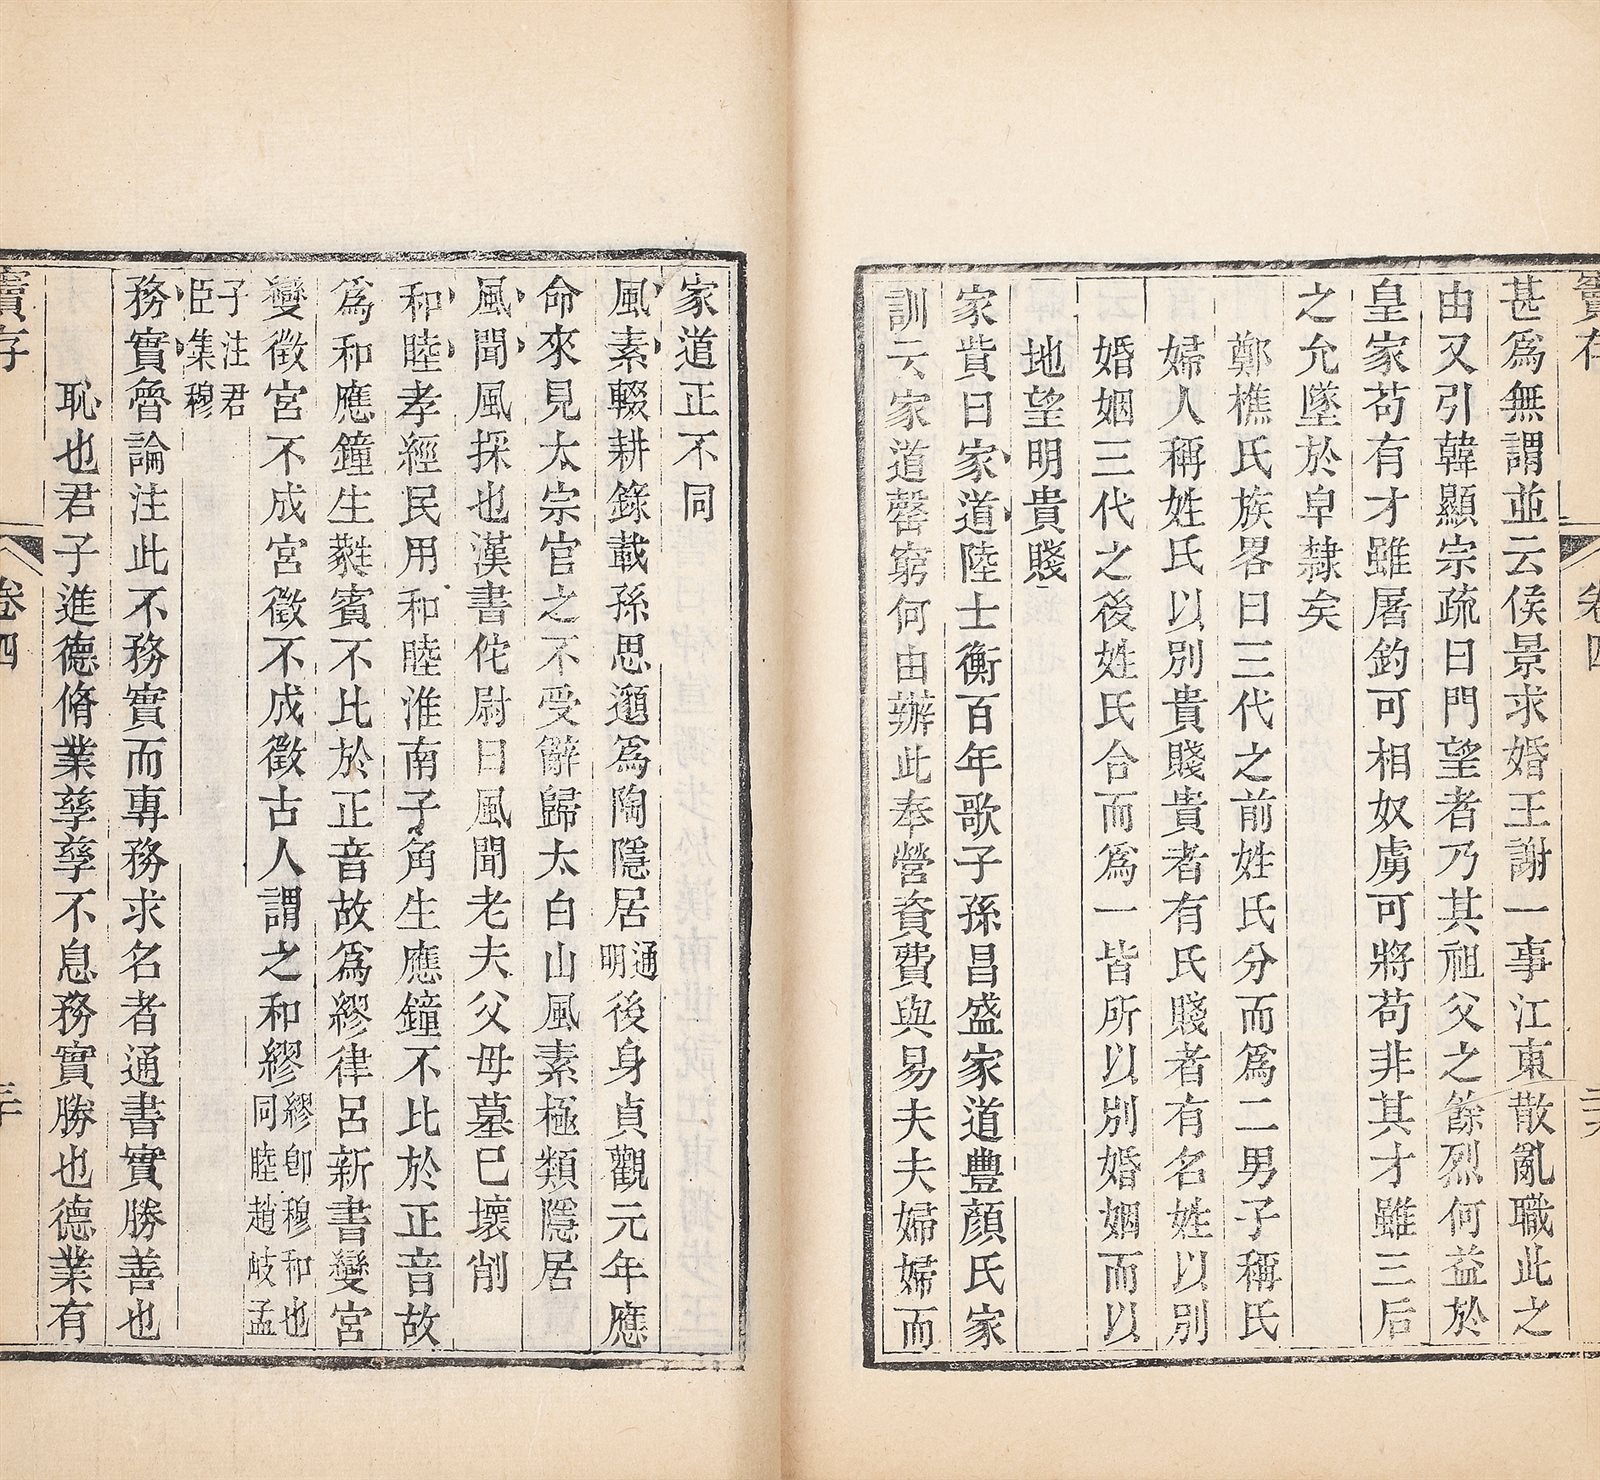 竇存
卷四
甚爲無謂並云侯景求婚王謝一事江東散亂職此之
由又引韓顯宗疏曰門望者乃其祖父之餘烈何益於
皇家苟有才雖屠釣可相奴虜可將苟非其才雖三后
之允墜於皁隸矣
鄭樵氏族畧曰三代之前姓氏分而爲二男子稱氏
婦人稱姓氏以別貴賤貴者有氏賤者有名姓以別
婚姻三代之後姓氏合而爲一皆所以別婚姻而以
地望明貴賤
家貲曰家道陸士衡百年歌子孫昌盛家道豐顏氏家
訓云家道罄窮何由辦此奉營資費與易夫夫婦婦而
家道正不同
風素輟耕錄載孫思邈爲陶隱居通明後身貞觀元年應
命來見太宗官之不受辭歸太白山風素極類隱居
風聞風採也漢書佗尉曰風聞老夫父母墓已壞削
和睦孝經民用和睦淮南子角生應鐘不比於正音故
爲和應鐘生蕤賓不比於正音故爲繆律呂新書變宮
變徵宮不成宮徵不成徵古人謂之和繆繆卽穆和也同睦趙岐孟
子注君臣集穆
務實魯論注此不務實而專務求名者通書實勝善也
恥也君子進德脩業孳孳不息務實勝也德業有
竇存
卷四